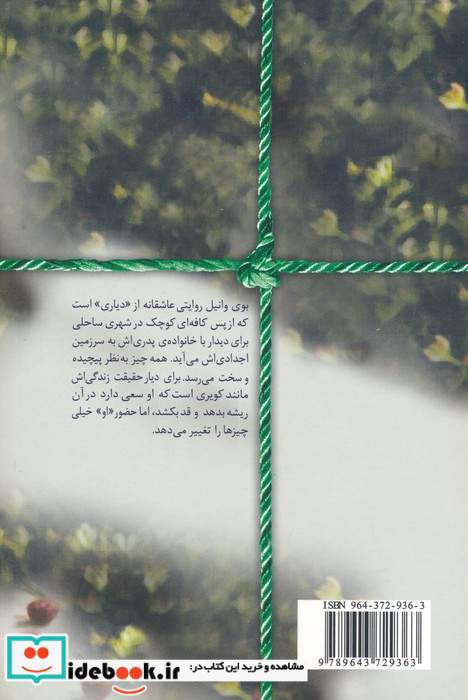 بوی وانیل روایتی عاشقانه از «دیاری» است
که از پس کافه‌ای کوچک در شهری ساحلی
برای دیدار با خانواده‌ی پدری‌اش به سرزمین
اجدادی‌اش می‌آید. همه چیز به‌نظر پیچیده
و سخت می‌رسد. برای دیار حقیقت زندگی‌اش
مانند کویری است که او سعی دارد در آن
ریشه بدهد و قد بکشد، اما حضور «او» خیلی
چیزها را تغییر می‌دهد.
ISBN 964-372-936-3
9 789643 729363
idebook.ir
مشاهده و خرید این کتاب در: